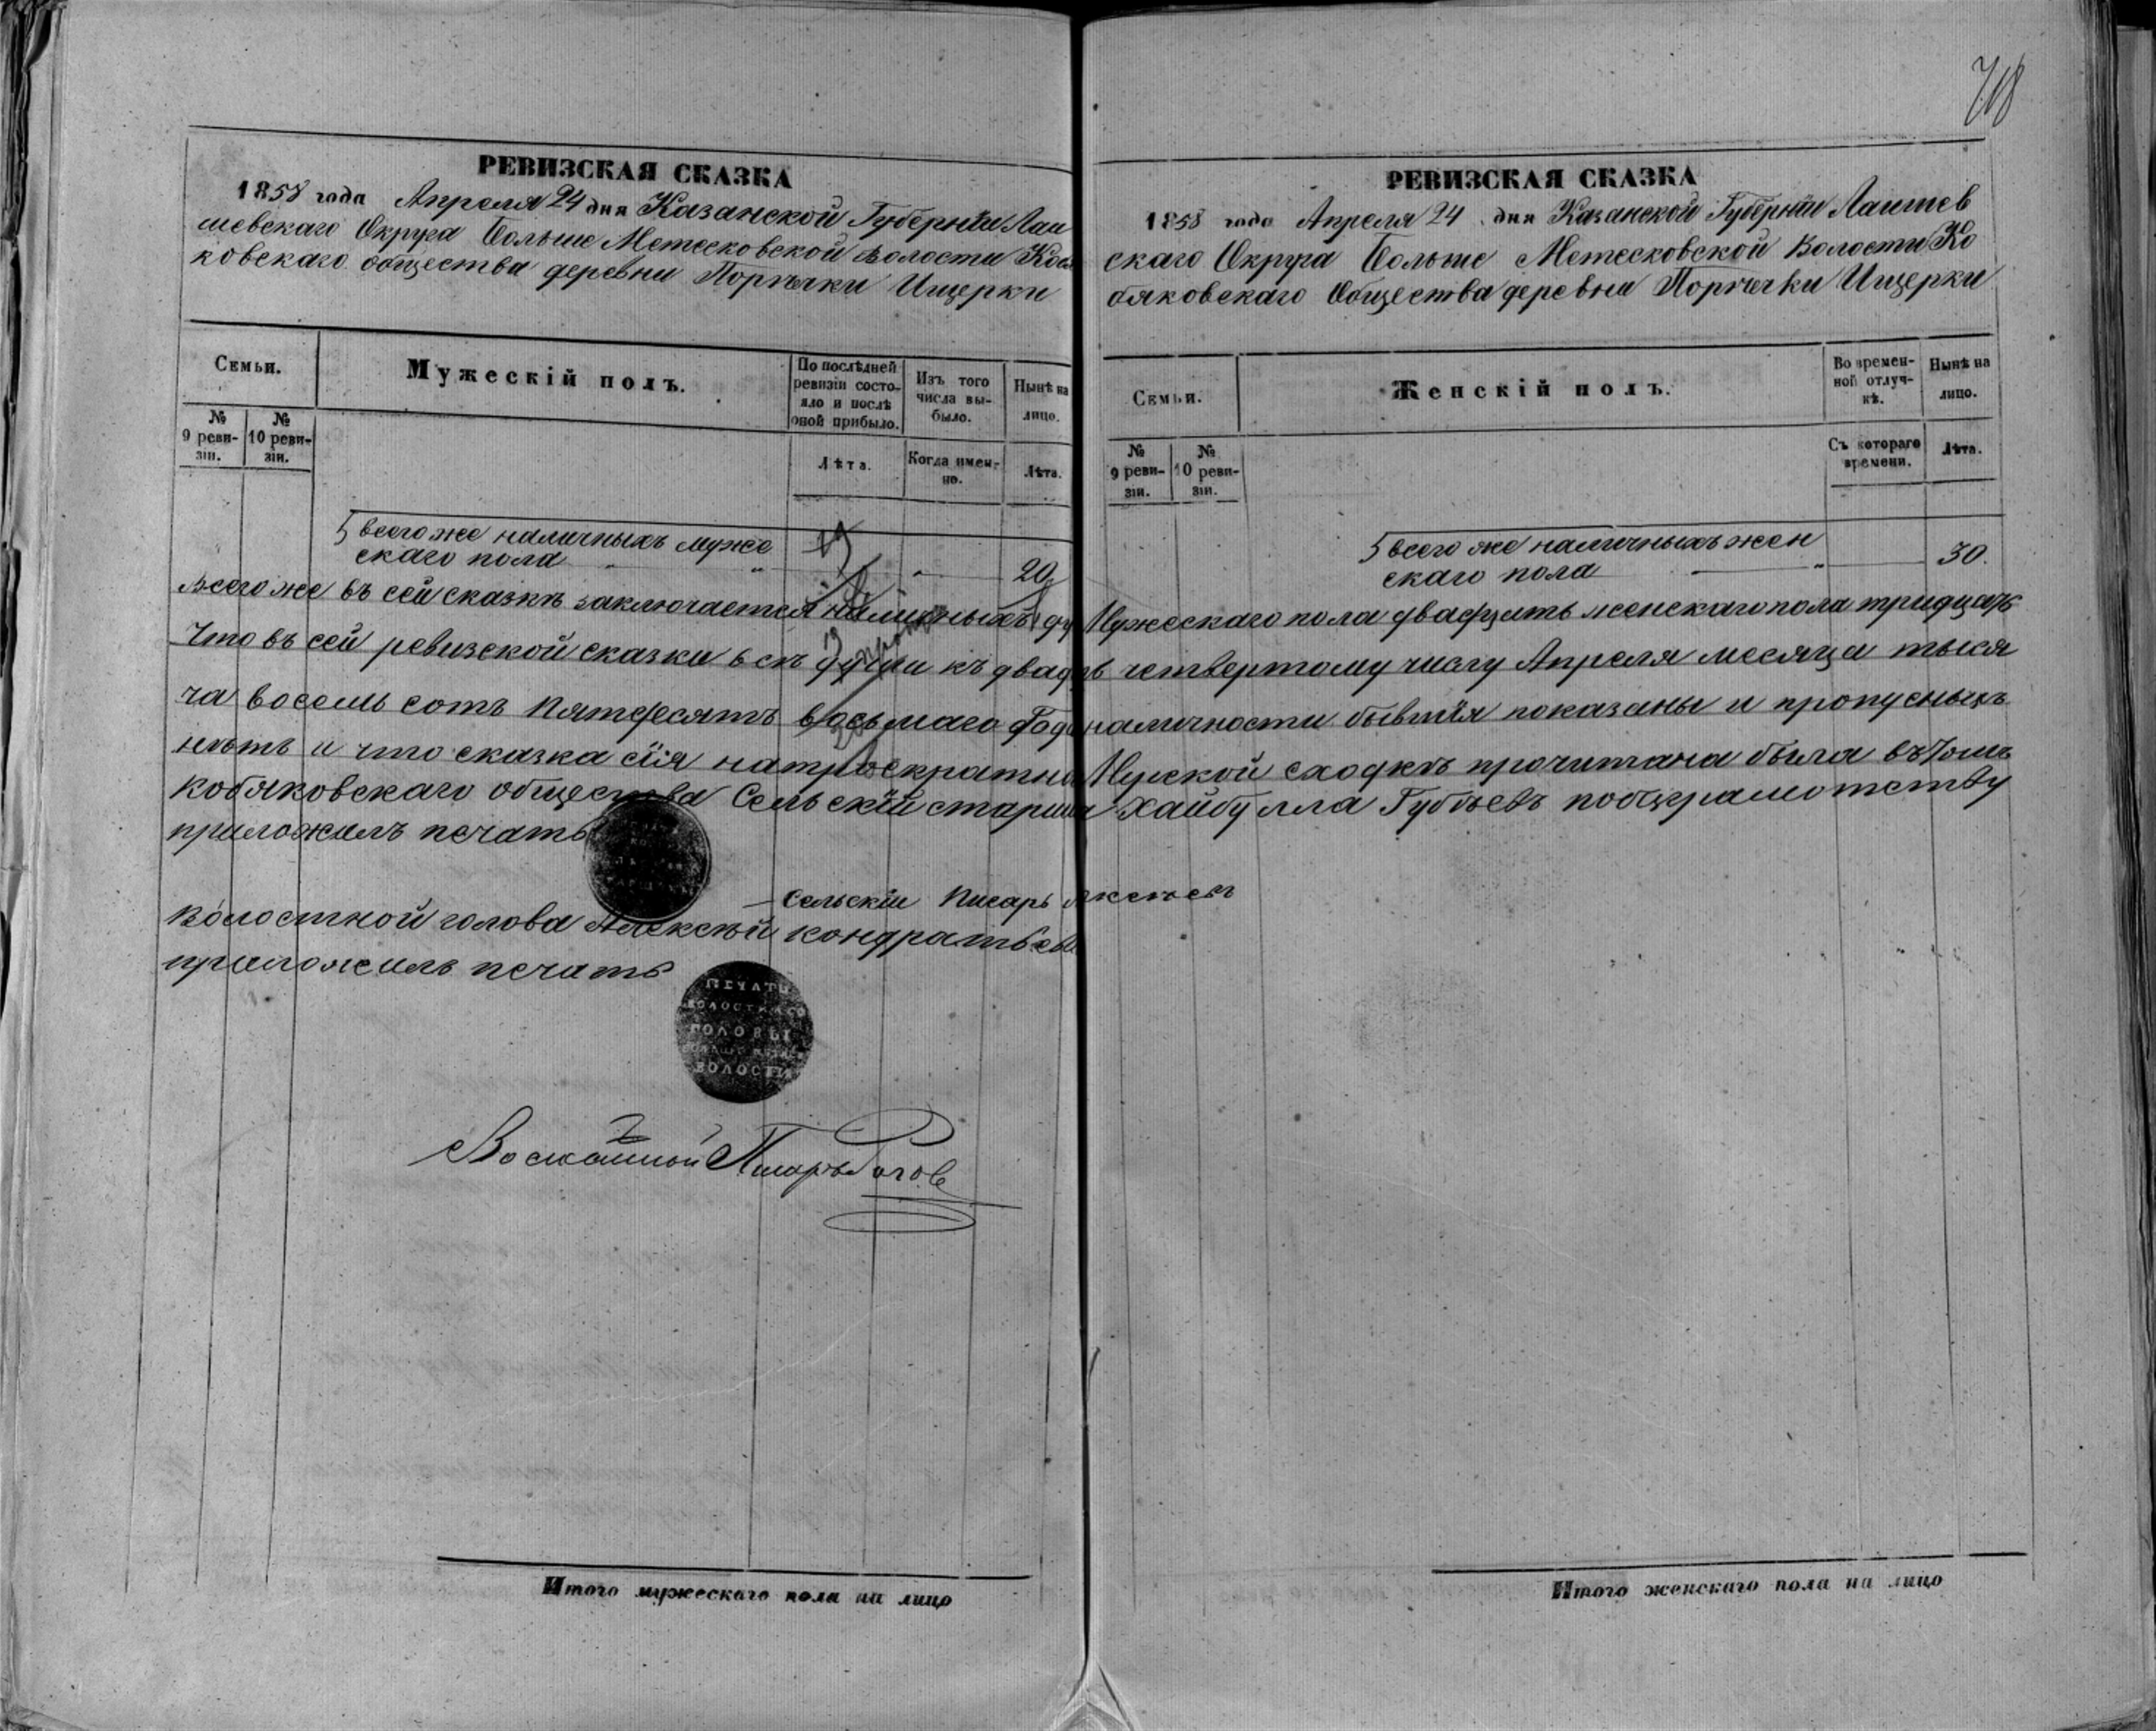 718
РЕВИЗСКАЯ СКАЗКА
1858 года Апреля 24 дня Казанской Губерніи Лаи
шевскаго Округа Больше Метесковской Волости Коб
ковскаго общества деревни Порѣчки Ищерки
Семьи.
Мужескій полъ.
По послѣдней ревизіи состояло и послѣ оной прибыло.
Изъ того числа выбыло.
Нынѣ на лицо.
№ 9 ревизіи.
№ 10 ревизіи.
Лѣта.
Когда именно.
Лѣта.
5 всего же наличныхъ муже
скаго пола " " " 20
РЕВИЗСКАЯ СКАЗКА
1858 года Апреля 24 дня Казанской Губерніи Лаишев
скаго Округа Больше Метесковской Волости Ко
бяковскаго Общества деревни Порѣчки Ищерки
Семьи.
Женскій полъ.
Во временной отлучкѣ.
Нынѣ на лицо.
№ 9 ревизіи.
№ 10 ревизіи.
Съ котораго времени.
Лѣта.
5 всего же наличныхъ жен
скаго пола " 30.
Всего же въ сей сказкѣ заключается наличныхъ ду Мужескаго пола двадцать женскаго пола тридцать
Что въ сей ревизской сказки всѣ души къ двадць четвертому числу Апреля месяца тыся
ча восемь сотъ пятдесятъ восьмаго Года наличности бывшія показаны и пропусныхъ
нѣтъ и что сказка сія на Мірской сходкѣ прочитана была въ томъ
Кобяковскаго общества Сельскій старшина Хайбулла Губѣевъ
приложилъ печать
Сельскій Писарь
Волостной голова Алексѣй Кондратьевъ
приложилъ печать
ПЕЧАТЬ
ВОЛОСТНАГО
ГОЛОВЫ
ВОЛОСТИ
Писарь Рогов
Итого мужескаго пола на лицо
Итого женскаго пола на лицо